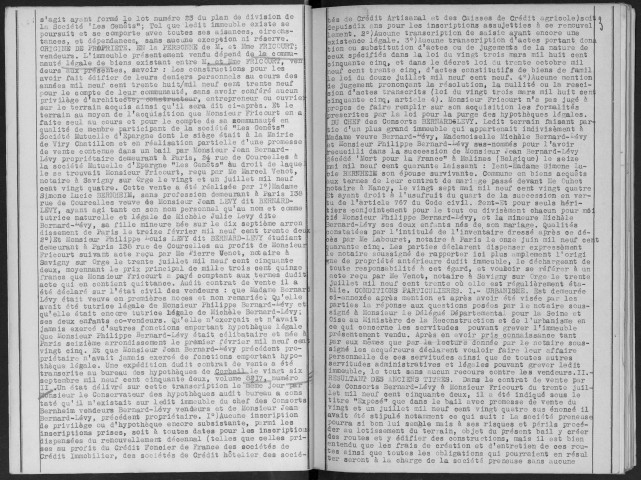 s'agit ayant formé le lot numéro 23 du plan de division de
la Société "Les Genêts", Tel que ledit immeuble existe se
poursuit et se comporte avec toutes ses aisances, circons-
tances, et dépendances, sans aucune exception ni réserve.
ORIGINE DE PROPRIETE. EN LA PERSONNE DE M. et Mme FRICOURT,
vendeurs. L'immeuble présentement vendu dépend de la commu-
nauté légale de biens existant entre M. et Mme FRICOURT, ven-
deurs aux présentes, savoir : Les constructions pour les
avoir fait édifier de leurs deniers personnels au cours des
années mil neuf cent trente huit/mil neuf cent trente neuf
pour le compte de leur communauté, sans avoir conféré aucun
privilège d'architecte, constructeur, entrepreneur ou ouvrier
sur le terrain acquis ainsi qu'il sera dit ci-après. Et le
terrain au moyen de l'acquisition que Monsieur Fricourt en a
faite seul au cours et pour le compte de sa communauté en
qualité de membre participant de la société "Les Genêts"
Société Mutuelle d'Epargne dont le siège était à la Mairie
de Viry Chatillon et en réalisation partielle d'une promesse
de vente contenue dans un bail par Monsieur Jean Bernard-
Lévy propriétaire demeurant à Paris, 84 rue de Courcelles à
la société Mutuelle d'Epargne "Les Genêts" Au droit de laquel-
le se trouvait Monsieur Fricourt, reçu par Me Marcel Venot,
notaire à Savigny sur Orge le vingt et un juillet mil neuf
cent vingt quatre. Cette vente a été réalisée par 1°)Madame
Simone Lucie BERNHEIM, sans profession demeurant à Paris 138
rue de Courcelles veuve de Monsieur Jean LEVY dit BERNARD-
LEVY, ayant agi tant en son nom personnel qu'au nom et comme
tutrice naturelle et légale de Michèle Julie Levy dite
Bernard-Lévy, sa fille mineure née sur le dix septième arron
dissement de Paris le treize février mil neuf cent trente deux
2°)Et Monsieur Philippe Louis LEVY dit BERNARD-LEVY étudiant
demeurant à Paris 138 rue de Courcelles au profit de Monsieur
Fricourt suivant acte reçu par Me Pierre Venot, notaire à
Savigny sur Orge le trente juillet mil neuf cent cinquante
deux, moyennant le prix principal de mille trois cent quinze
francs que Monsieur Fricourt a payé comptant aux termes dudit
acte qui en contient quittance. Audit contrat de vente il a
été déclaré sur l'état civil des vendeurs : que Madame Bernard
Lévy était veuve en premières noces et non remariée. Qu'elle
avait été tutrice légale de Monsieur Philippe Bernard-Lévy et
qu'elle était encore tutrice légale de Michèle Bernard-Lévy;
ses deux enfants co-vendeurs. Qu'elle n'exerçait et n'avait
jamais exercé d'autres fonctions emportant hypothèque légale
Que Monsieur Philippe Bernard-Lévy était célibataire et né à
Paris seizième arrondissement le premier février mil neuf cent
vingt cinq. Et que Monsieur Jean Bernard-Lévy précédent pro-
priétaire n'avait jamais exercé de fonctions emportant hypo-
thèque légale. Une expédition dudit contrat de vente a été
transcrite au bureau des hypothèques de Corbeil le vingt six
septembre mil neuf cent cinquante deux, volume numéro
II. Un état délivré sur cette transcription le même jour par
Monsieur le Conservateur des hypothèques audit bureau a cons-
taté qu'il n'existait sur ledit immeuble du chef des Consorts
Bernheim vendeurs Bernard-Lévy vendeurs et de Monsieur Jean
Bernard-Lévy, précédent propriétaire. 1°)Aucune inscription
de privilège ou d'hypothèque encore subsistante, parmi les
inscriptions prises, soit à toutes dates pour les inscriptions
dispensées du renouvellement décennal (telles que celles pri-
ses au profit du Crédit Foncier de France des sociétés de
Crédit Immobilier, des sociétés de Crédit hôtelier des socié-
tés de Crédit Artisanal et des Caisses de Crédit agricole)soit
depuis dix ans pour les inscriptions assujetties à ce renouvel
lement. 2°)Aucune transcription de saisie ayant encore une
existence légale. 3°)Aucune transcription d'actes portant dona
tion ou substitution d'actes ou de jugements de la nature de
ceux spécifiés dans la loi du vingt trois mars mil huit cent
cinquante cinq, et dans le décret loi du trente octobre mil
neuf cent trente cinq, d'actes constitutifs de biens de famil
le loi du douze juillet mil neuf cent neuf. 4°)Aucune mention
de jugement prononçant la résolution, la nullité ou la resci-
sion d'actes transcrits (loi du vingt trois mars mil huit cent
cinquante cinq, article 4). Monsieur Fricourt n'a pas jugé à
propos de faire remplir sur son acquisition les formalités
prescrites par la loi pour la purge des hypothèques légales.
DU CHEF des Consorts BERNHEIM-LEVY. Ledit terrain faisant par-
tie d'un plus grand immeuble qui appartenait indivisément à
Madame veuve Bernard-Lévy, Mademoiselle Michèle Bernard-Lévy
et Monsieur Philippe Bernard-Lévy sus-nommés pour l'avoir
recueilli dans la succession de Monsieur Jean Bernard-Lévy
décédé "Mort pour la France" à Malines (Belgique) le seize
mai mil neuf cent quarante laissant : Lent-Madame Simone Lu-
cie BERNHEIM son épouse survivante. Commune en biens acquêts
aux termes de leur contrat de mariage passé devant Me Cuhot
notaire à Nancy, le vingt sept mai mil neuf cent vingt quatre
Et ayant droit à l'usufruit du quart de la succession en ver-
tu de l'article 767 du Code civil. Sont-Et pour seuls héri-
tiers conjointement pour le tout ou divisément chacun pour moi
tié Monsieur Philippe Bernard-Lévy, et la mineure Michèle
Bernard-Lévy ses deux enfants nés de son mariage. Qualités
constatées par l'intitulé de l'inventaire dressé après ce dé-
cès par Me Labouret, notaire à Paris le onze juin mil neuf cent
quarante cinq. Les parties déclarent dispenser expressément
le notaire soussigné de rapporter ici plus amplement l'origi-
ne de propriété antérieure dudit immeuble, le déchargeant de
toute responsabilité à cet égard, et vouloir se référer à un
acte reçu par Me Venot, notaire à Savigny sur Orge le trente
juillet mil neuf cent trente où elle est régulièrement éta-
blie. CONDITIONS PARTICULIERES. I.- URBANISME. Est demeurée
ci-annexée après mention et après avoir été visée par les
parties la réponse aux questions posées par le notaire sous-
signé à Monsieur le Délégué Départemental pour la Seine et
Oise du Ministère de la Reconstruction et de l'urbanisme en
ce qui concerne les servitudes pouvant grever l'immeuble
présentement vendu. Après en avoir pris connaissance tant
par eux mêmes que par la lecture donnée par le notaire sous-
signé les acquéreurs déclarent vouloir faire leur affaire
personnelle de ces servitudes ainsi que de toutes autres
servitudes administratives et légales pouvant grever ledit
immeuble, le tout sans aucun recours contre les vendeurs.II.-
RESULTANT DES ANCIENS TITRES. Dans le contrat de vente par
les Consorts Bernard-Lévy à Monsieur Fricourt du trente juil-
let mil neuf cent cinquante deux, il a été indiqué sous le
titre "Exposé" que dans le bail avec promesse de vente du
vingt et un juillet mil neuf cent vingt quatre sus énoncé il
avait été stipulé notamment ce qui suit : La société preneuse
pourra si bon lui semble mais à ses risques et périls procé-
der au lotissement du terrain, objet du présent bail y créer
des routes et y édifier des constructions, mais il est bien
entendu que les frais de création et d'entretien de ces rou-
tes ainsi que toutes les obligations qui pourraient en résul
ter seront à la charge de la société preneuse sans aucune